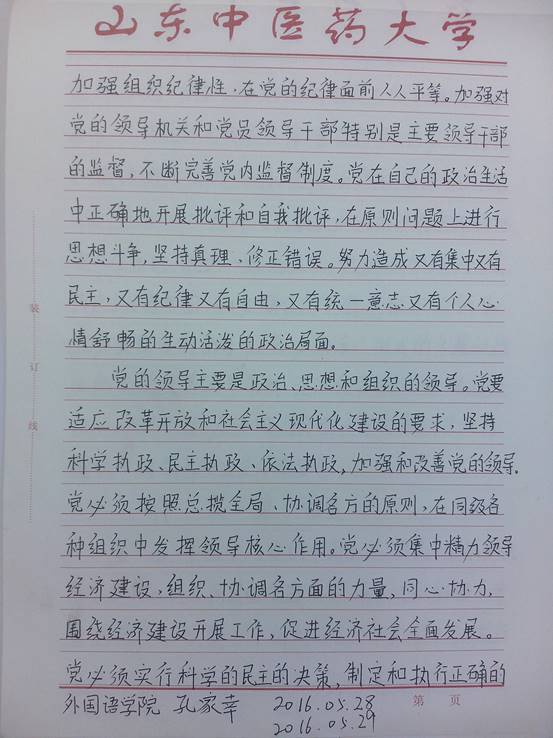 山东中医药大学
加强组织纪律性,在党的纪律面前人人平等。加强对
党的领导机关和党员领导干部特别是主要领导干部
的监督,不断完善党内监督制度。党在自己的政治生活
中正确地开展批评和自我批评,在原则问题上进行
思想斗争,坚持真理、修正错误。努力造成又有集中又有
民主,又有纪律又有自由,又有统一意志又有个人心
情舒畅的生动活泼的政治局面。
党的领导主要是政治、思想和组织的领导。党要
适应改革开放和社会主义现代化建设的要求,坚持
科学执政、民主执政、依法执政,加强和改善党的领导.
党必须按照总揽全局、协调各方的原则,在同级各
种组织中发挥领导核心作用。党必须集中精力领导
经济建设,组织、协调各方面的力量,同心协力,
围绕经济建设开展工作,促进经济社会全面发展。
党必须实行科学的民主的决策,制定和执行正确的
外国语学院 孔家幸 2016.05.28
2016.05.29
第 页
装
订
线